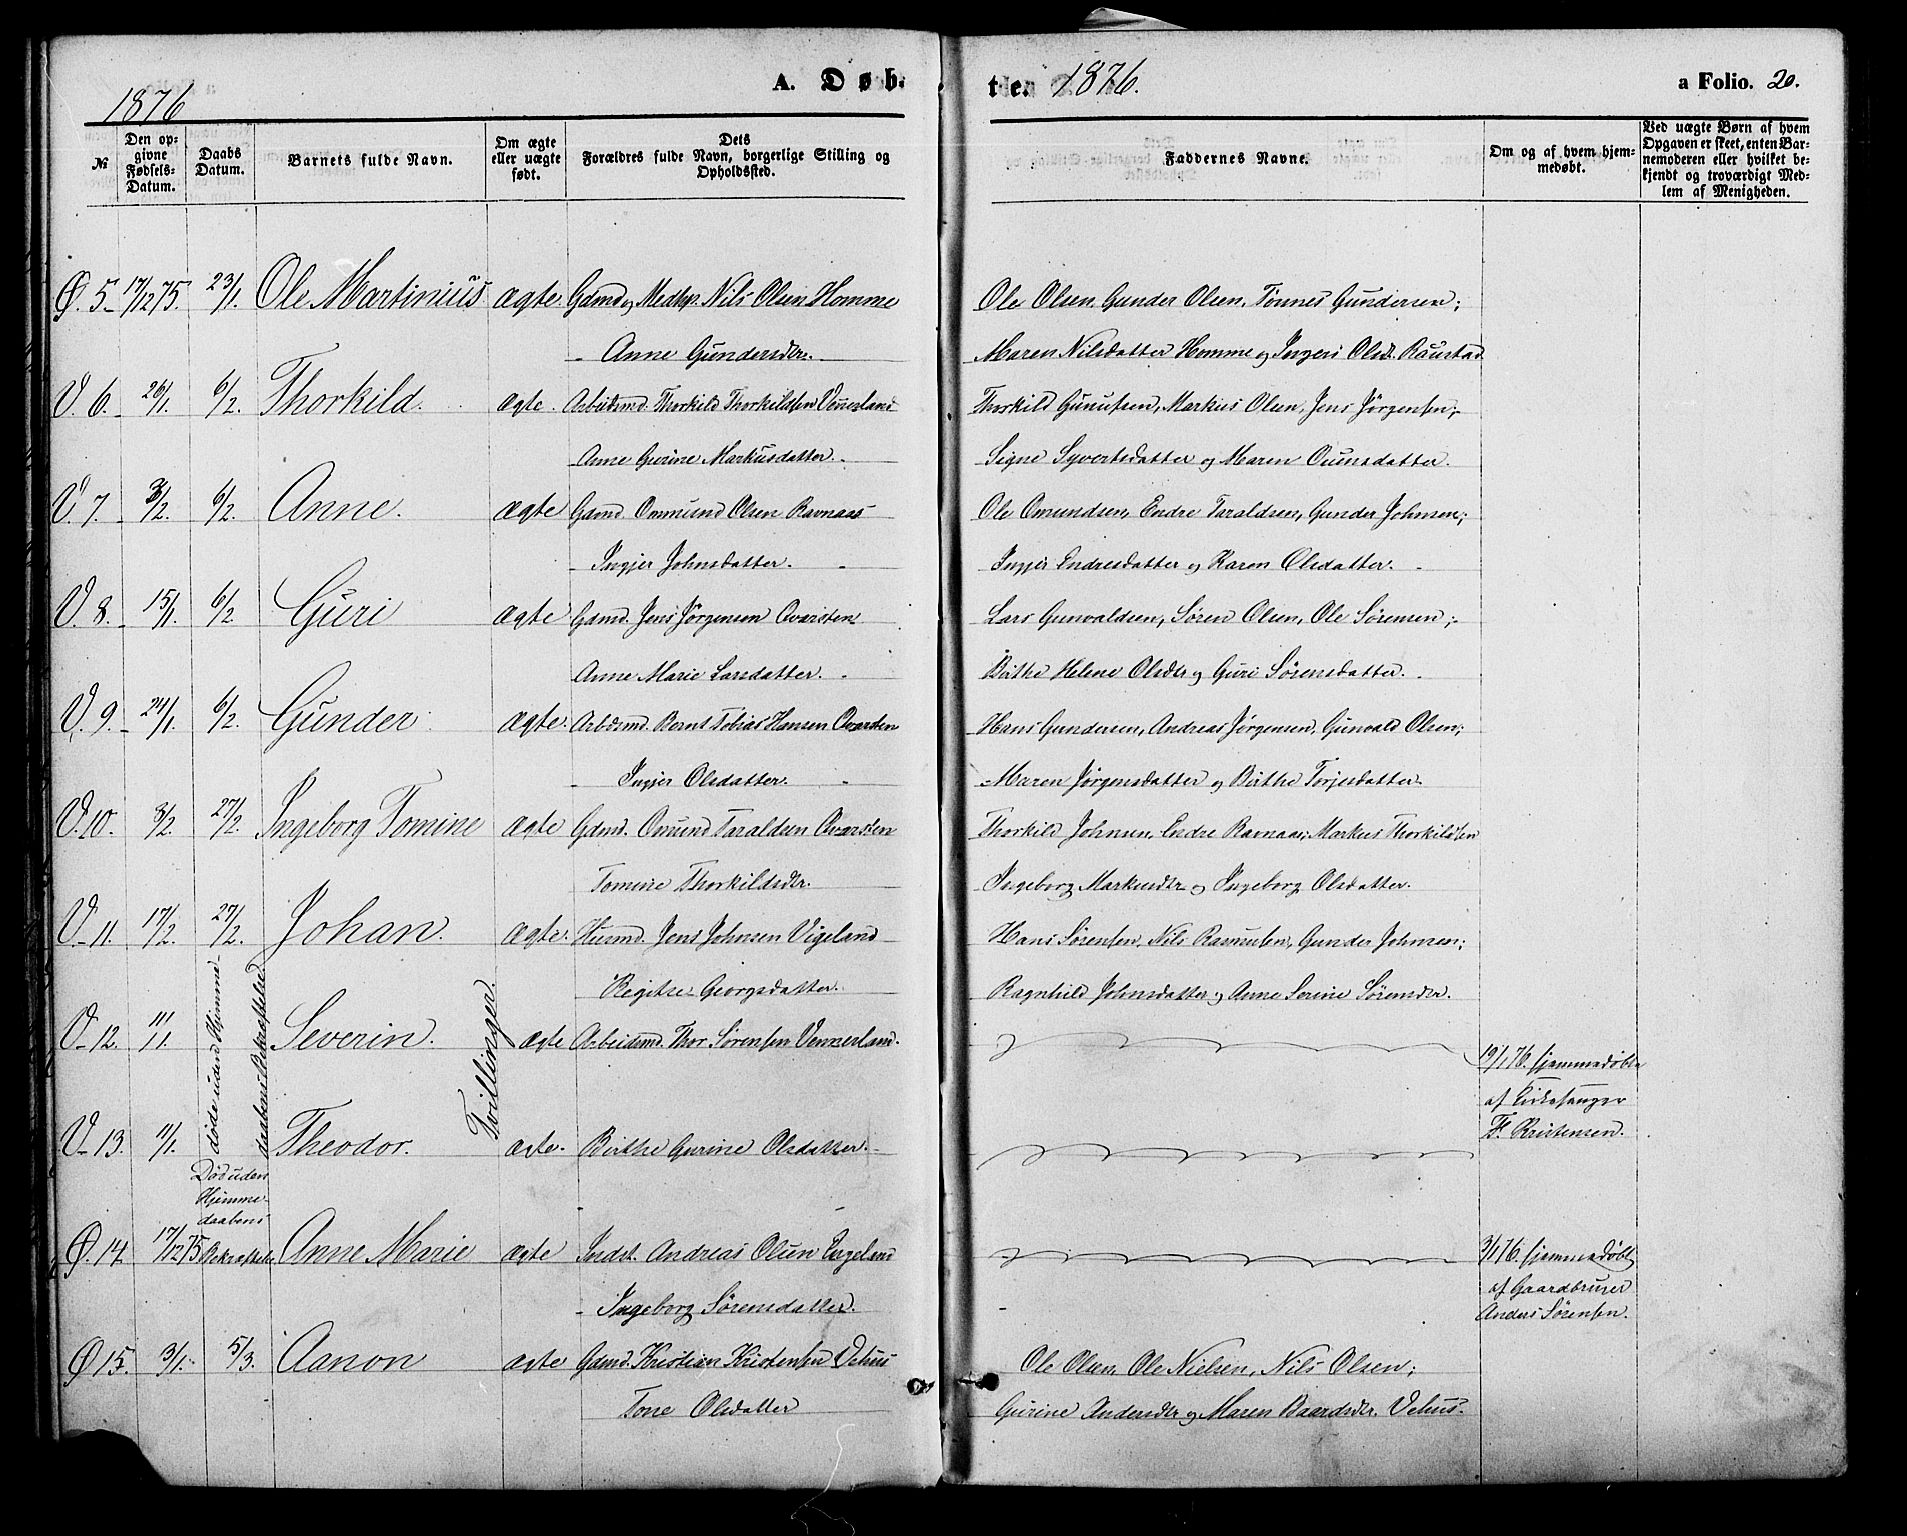 1876
A. Døb-
te. 1876.
a Folio. 20.
№
Den opgivne Fødsels-Datum.
Daabs Datum.
Barnets fulde Navn.
Om ægte eller uægte født.
Dets Forældres fulde Navn, borgerlige Stilling og Opholdssted.
Faddernes Navne.
Om og af hvem hjemmedøbt.
Ved uægte Børn af hvem Opgaven er skeet, enten Barnemoderen eller hvilket bekjendt og troværdigt Medlem af Menigheden.
Ø. 5. 17/12 75. 23/1. Ole Martinius ægte. Gdmd og Medhp. Nils Olsen Homme Ole Olsen, Gunder Olsen, Tønnes Gundersen;
Anne Gundersdtr. Maren Nilsdatter Homme og Ingeri Olsd. Raustad
V. 6. 26/1. 6/2. Thorkild. ægte. Arbeidsmd. Thorkild Thorkildsen Vennesland Thorkild Gunufsen, Markus Olsen, Jens Jørgensen;
Anne Gurine Markusdatter. Signe Syvertsdatter og Maren datter.
V. 7. 3/2. 6/2. Anne. ægte Gamd. Ommund Olsen Ravnaas Ole Omundsen, Endre Taraldsen, Gunder Johnsen;
Ingjer Johnsdatter. Ingjer Endresdatter og Karen Olsdatter.
V. 8. 15/1. 6/2. Guri ægte Gamd. Jens Jørgensen Qvarsten Lars Gunvaldsen, Søren Olsen, Ole Sørensen;
Anne Marie Larsdatter. Birthe Helene Olsdtr og Guri Sørensdatter.
V. 9. 24/1. 6/2. Gunder ægte. Arbdsmd. Bernt Tobias Hansen Qvarsten Hans Gundersen, Andreas Jørgensen, Gunvald Olsen;
Ingjer Olsdatter. Maren Jørgensdatter og Birthe Torjesdatter.
V. 10. 3/2. 27/2. Ingeborg Tomine ægte Gdmd. Omund Taraldsen Qvarsten Thorkild Johnsen, Endre Ravnaas, Markus Thorkildsen
Tomine Thorkildsdtr. Ingeborg Markusdtr og Ingeborg Olsdatter.
V. 11. 17/2. 27/2. Johan. ægte. Husmd. Jens Johnsen Vigeland Hans Sørensen, Nils Rasmusen, Gunder Johnsen;
Regitse Georgsdatter. Ragnhild Johnsdatter og Anne Serine Sørensdtr.
V. 12. 11/1. døde uden Hjemmedaabens Bekræftelse. Severin. Tvillinger. ægte Arbeidsmd. Thor Sørensen Vennesland.
19/1 76. hjemmedøbte
af Kirkesanger
F. Kristensen.
V. 13. 11/1. Theodor. ægte. Birthe Gurine Olsdatter.
Død uden
Hjemme-
daabens
Ø. 14. 17/12 75 Bekræftelse Anne Marie ægte Indst. Andreas Olsen Engeland 3/1 76. hjemmedøbt
af Gaardbruger
Ingeborg Sørensdatter. Anders Sørensen.
Ø 15. 3/1. 5/3. Aanon ægte Gdmd. Kristian Kristensen Vehus Ole Olsen, Ole Nielsen, Nils Olsen;
Tone Olsdatter Gurine Andersdtr og Maren Baardsdtr. Vehus.